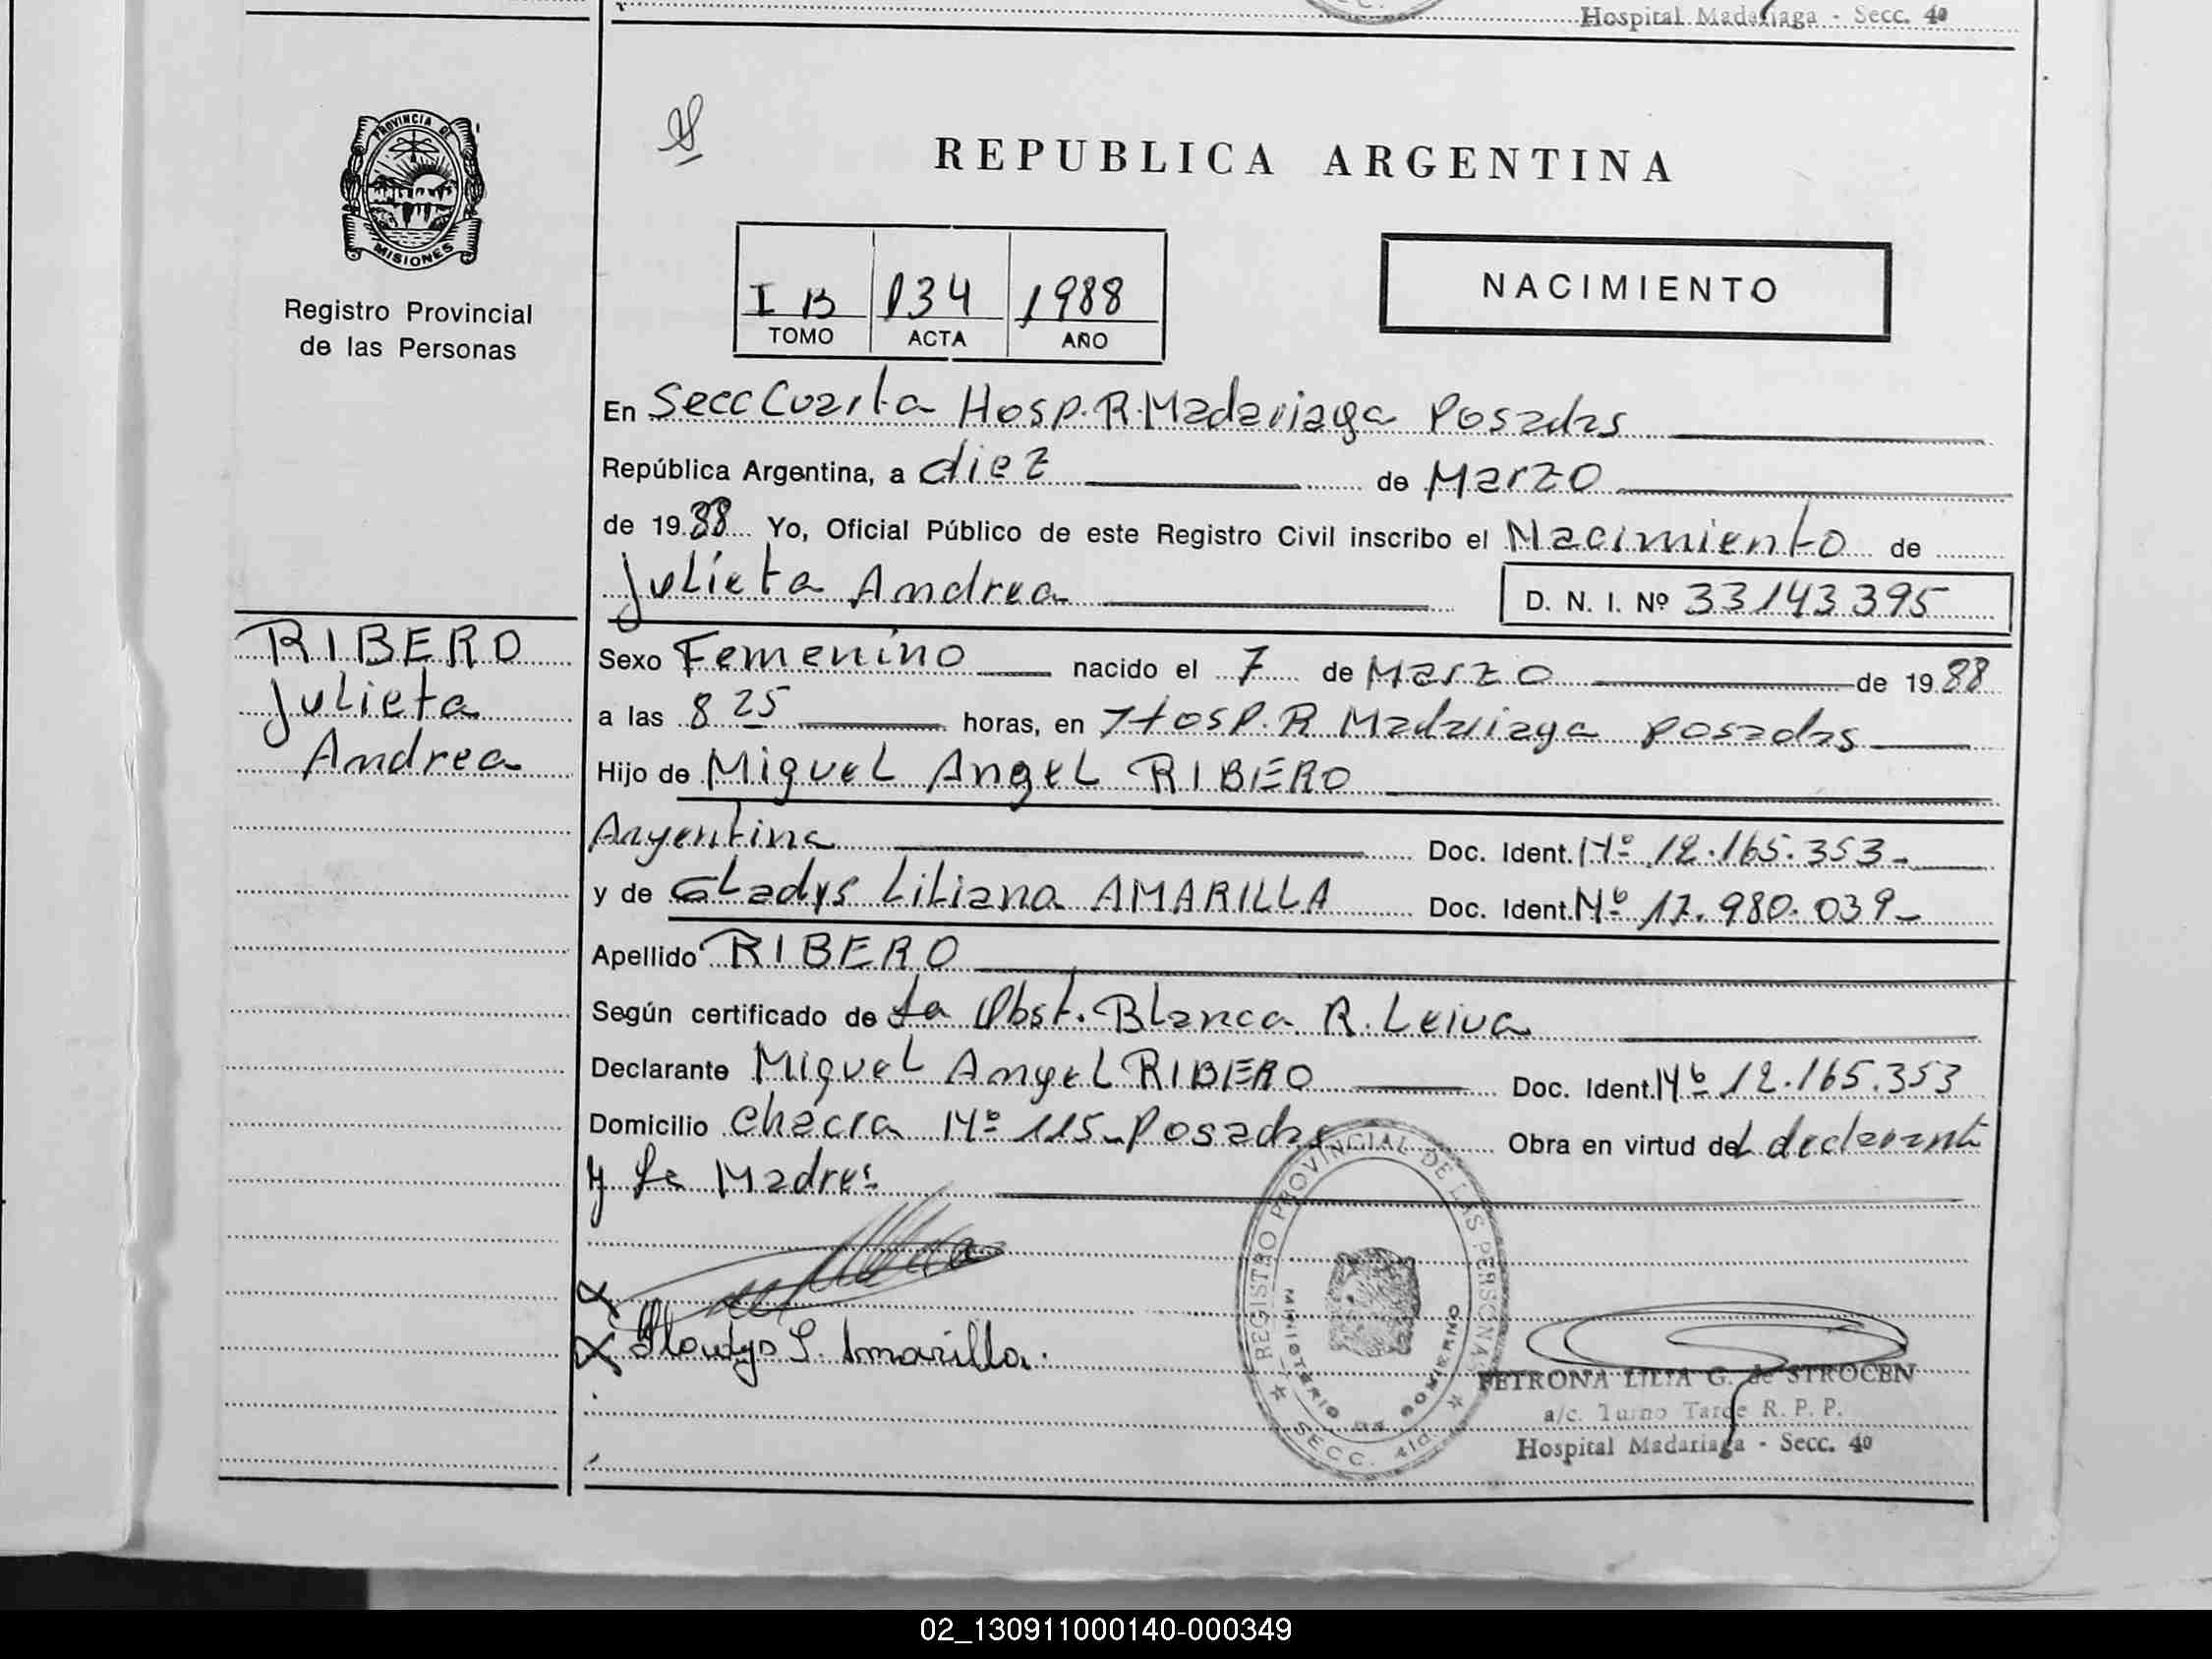 Hospital Madariaga - Secc. 4º
PROVINCIA DE
MISIONES
Registro Provincial
de las Personas
REPUBLICA ARGENTINA
I B 134 1988
TOMO ACTA AÑO
NACIMIENTO
En Secc Cuarta Hosp. R. Madariaga Posadas
República Argentina, a diez de Marzo
de 1988 Yo, Oficial Público de este Registro Civil inscribo el Nacimiento de
Julieta Andrea D. N. I. Nº 33143395
RIBERO
Julieta
Andrea
Sexo Femenino nacido el 7 de Marzo de 1988
a las 8 25 horas, en Hosp. R Madariaga posadas
Hijo de Miguel Angel RIBERO
Argentina Doc. Ident. Nº 12.165.353-
y de Gladys Liliana AMARILLA Doc. Ident. Nº 17.980.039-
Apellido RIBERO
Según certificado de La Obst. Blanca R. Leiva
Declarante Miguel Angel RIBERO Doc. Ident. Nº 12.165.353
Domicilio Chacra Nº 115-Posadas Obra en virtud del declarante
y La Madre:
Gladys L. Amarilla.
REGISTRO PROVINCIAL DE LAS PERSONAS
MINISTERIO DE GOBIERNO
SECC. 4ta.
PETRONA LILIA G. de STROCEN
a/c. Turno Tarde R. P. P.
Hospital Madariaga - Secc. 4º
02_130911000140-000349